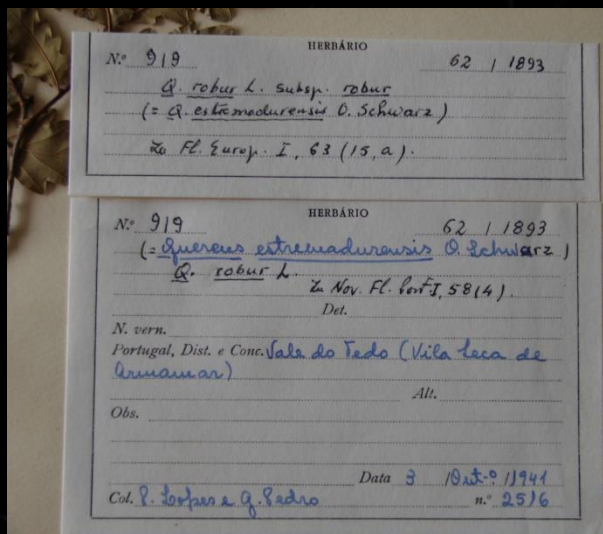 HERBÁRIO
N.º 919 62 / 1893
Q. robur L. subsp. robur
(= Q. estremadurensis O. Schwarz)
In Fl. Europ. I, 63 (15, a).
HERBÁRIO
N.º 919 62 / 1893
(= Quercus estremadurensis O. Schwarz)
Q. robur L.
In Nov. Fl. Port. I, 58 (4).
Det.
N. vern.
Portugal, Dist. e Conc. Vale do Tedo (Vila Seca de
Armamar)
Alt.
Obs.
Data 3 /Out.º /1941
Col. P. Lopes e G. Pedro n.º 2516